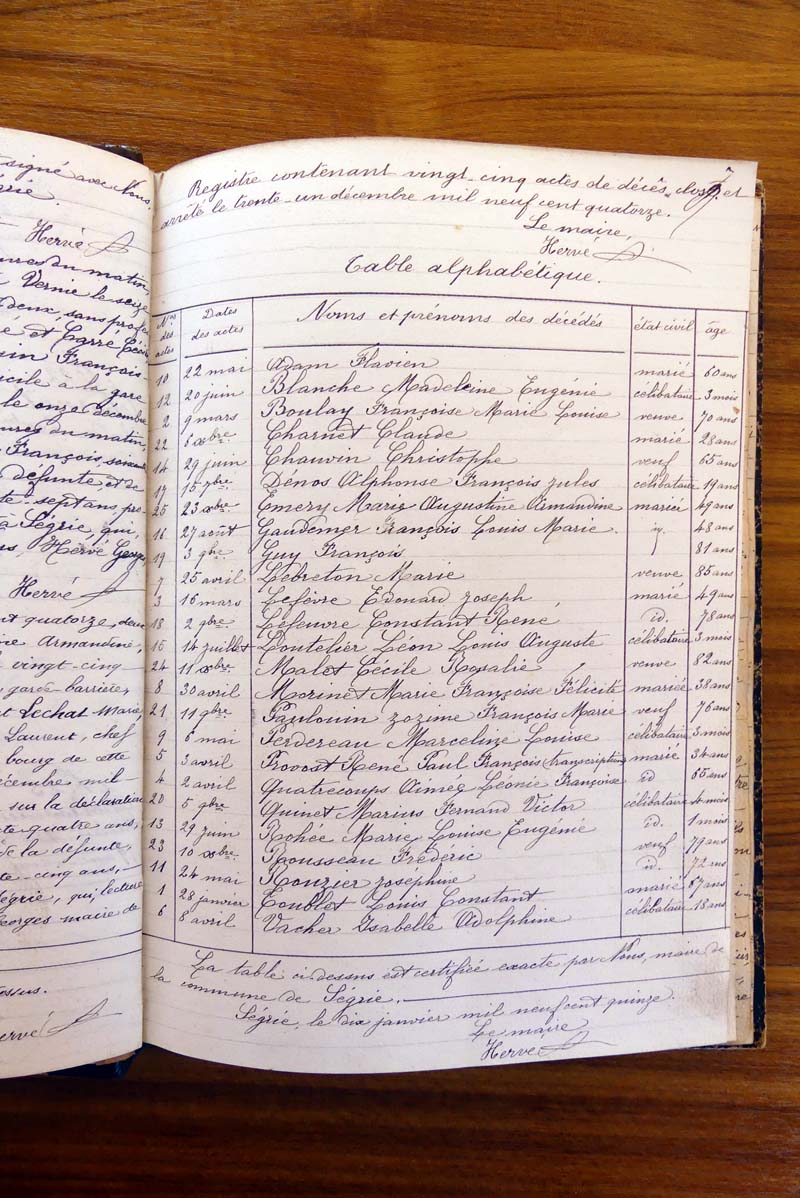 signé avec Nous,
Hervé
Vernie le seize
Deux, sans profes
et Carre Céci
François
cile à la gare
le onze décembre
ures du matin,
François, soixan
défunte, et de
te-sept ans, pre
à Ségrie, qui,
us, Hervé Georges
Hervé
t quatorze, deux
Armandine,
vingt-cinq
garde barrière,
et Lechat Marie
Laurent, chef
bourg de cette
écembre mil
sur la déclaration
te quatre ans,
de la défunte,
te-cinq ans,
Ségrie, qui, lecture
eorges maire de
essus.
ervé
7
Registre contenant vingt-cinq actes de décès, clos et
arrêté le trente-un décembre mil neuf cent quatorze.
Le maire,
Hervé
Table alphabétique.
Nos des actes Dates des actes Noms et prénoms des décédés état civil âge
10 22 mai Adam Flavien marié 60 ans
12 20 juin Blanche Madeleine Eugénie célibataire 3 mois
2 9 mars Boulay Françoise Marie Louise veuve 70 ans
22 6 xbre Charnet Claude marié 28 ans
14 29 juin Chauvin Christophe veuf 65 ans
17 15 7bre Denos Alphonse François Jules célibataire 19 ans
25 23 xbre Emery Marie Augustine Armandine mariée 49 ans
16 27 août Gaudemer François Louis Marie 48 ans
19 3 9bre Guy François 81 ans
7 25 avril Lebreton Marie veuve 85 ans
3 16 mars Lefèvre Edouard Joseph marié 49 ans
18 2 9bre Lefeuvre Constant René id. 78 ans
15 14 juillet Loutelier Léon Louis Auguste célibataire 3 mois
24 11 xbre Malet Cécile Rosalie veuve 82 ans
8 30 avril Morinet Marie Françoise Félicité mariée 38 ans
21 11 9bre Paulouin Zozime François Marie veuf 76 ans
9 6 mai Perdereau Marceline Louise célibataire 3 mois
5 3 avril Provost René Paul François (transcription) marié 34 ans
4 2 avril Quatrecoups Aimée Léonie Françoise id 65 ans
20 5 9bre Quinet Marius Fernand Victor célibataire 4 mois
13 29 juin Rohée Marie Louise Eugénie id. 1 mois
23 10 xbre Rousseau Frédéric veuf 79 ans
11 24 mai Rouzier Joséphine id. 72 ans
1 28 janvier Toublet Louis Constant marié 67 ans
6 8 avril Vacher Isabelle Adolphine célibataire 18 ans
La table ci-dessus est certifiée exacte par Nous, maire de
la commune de Ségrie.
Ségrie, le dix janvier mil neuf cent quinze.
Le maire
Hervé